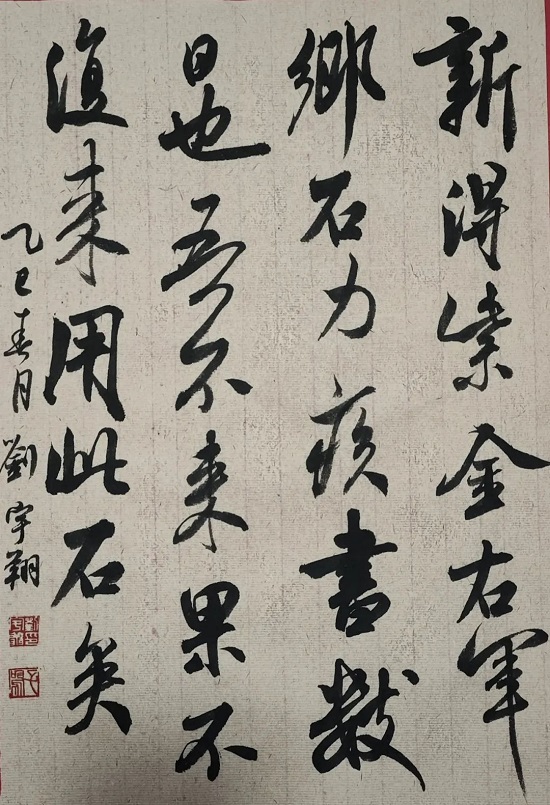 新得紫金右軍
鄉石力疾書數
日也吾不来果不
復来用此石矣
乙巳春月 劉宇翔